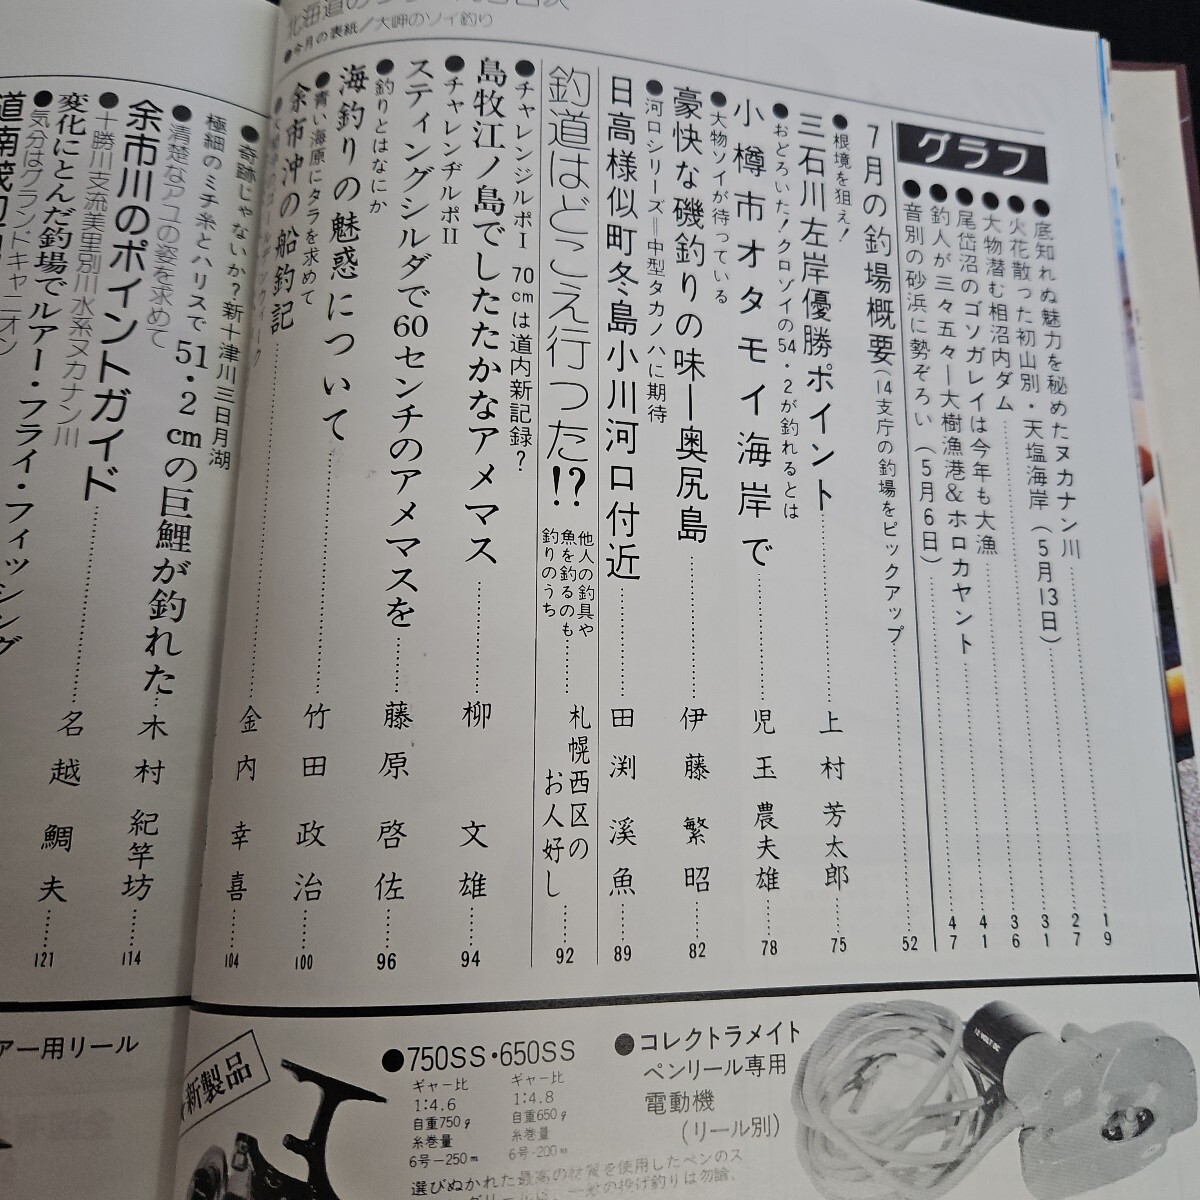 ●今月の表紙／大岬のソイ釣り
グラフ
●底知れぬ魅力を秘めたヌカナン川………19
●火花散った初山別・天塩海岸（5月13日）………27
●大物潜む相沼内ダム………31
●尾岱沼のゴソガレイは今年も大漁………36
●釣人が三々五々―大樹漁港&ホロカヤント………41
●音別の砂浜に勢ぞろい（5月6日）………47
7月の釣場概要（14支庁の釣場をピックアップ………52
●根境を狙え！
三石川左岸優勝ポイント………上村芳太郎………75
●おどろいた！クロゾイの54・2が釣れるとは
小樽市オタモイ海岸で………児玉農夫雄………78
●大物ソイが待っている
豪快な磯釣りの味―奥尻島………伊藤繁昭………82
●河口シリーズ＝中型タカノハに期待
日高様似町冬島小川河口付近………田渕溪魚………89
釣道はどこえ行つた!?
他人の釣具や
魚を釣るのも
釣りのうち………札幌西区の
お人好し………92
●チャレンジルポI 70cmは道内新記録？
島牧江ノ島でしたたかなアメマス………柳文雄………94
●チャレンヂルポII
スティングシルダで60センチのアメマスを………藤原啓佐………96
●釣りとはなにか
海釣りの魅惑について………竹田政治………100
●青い海原にタラを求めて
余市沖の船釣記………金内幸喜………104
●奇跡じゃないか？新十津川三日月湖
極細のミチ糸とハリスで51・2cmの巨鯉が釣れた………木村紀竿坊………114
●清楚なアユの姿を求めて
余市川のポイントガイド………名越鯛夫………121
●十勝川支流美里別川水系ヌカナン川
変化にとんだ釣場でルアー・フライ・フィッシング
●気分はグランドキャニオン
アー用リール
新製品
●750SS・650SS
ギャー比
1:4.6
自重750g
糸巻量
6号―250m
ギャー比
1:4.8
自重650g
糸巻量
6号―200m
選びぬかれた最高の材質を使用したペンのス
●コレクトラメイト
ペンリール専用
電動機
（リール別）
12 VOLT DC